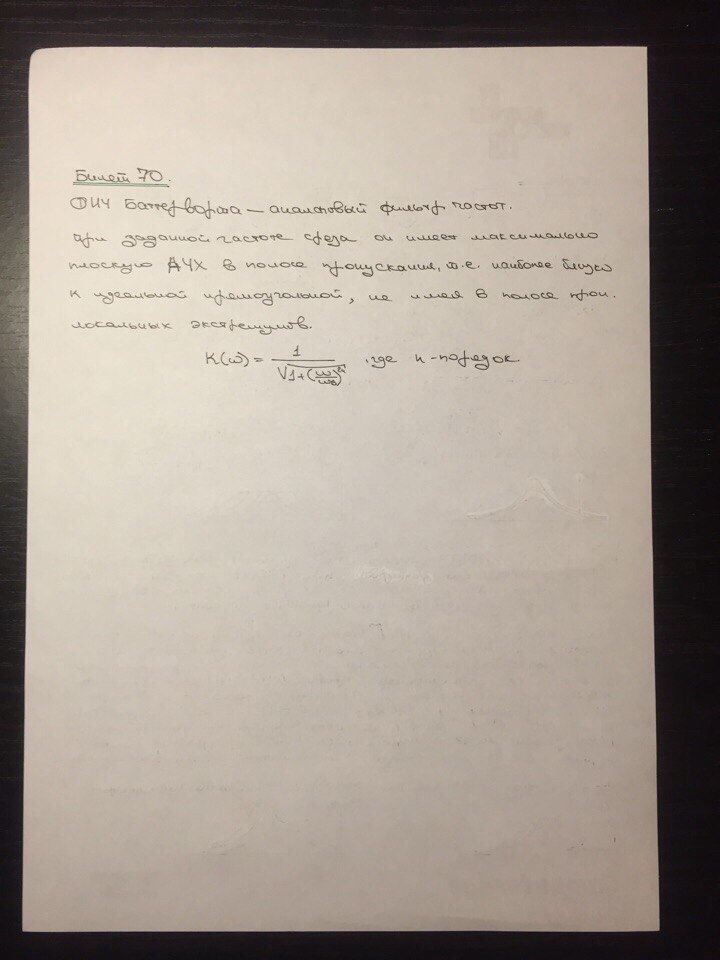 Билет 70.
ФНЧ Баттерворта — аналоговый фильтр частот.
при заданной частоте среза он имеет максимально
плоскую АЧХ в полосе пропускания, т.е. наиболее близко
к идеальной прямоугольной, не имея в полосе проп.
локальных экстремумов.
K(ω) = 1/√(1+(ω/ω₀)²ⁿ), где n-порядок.